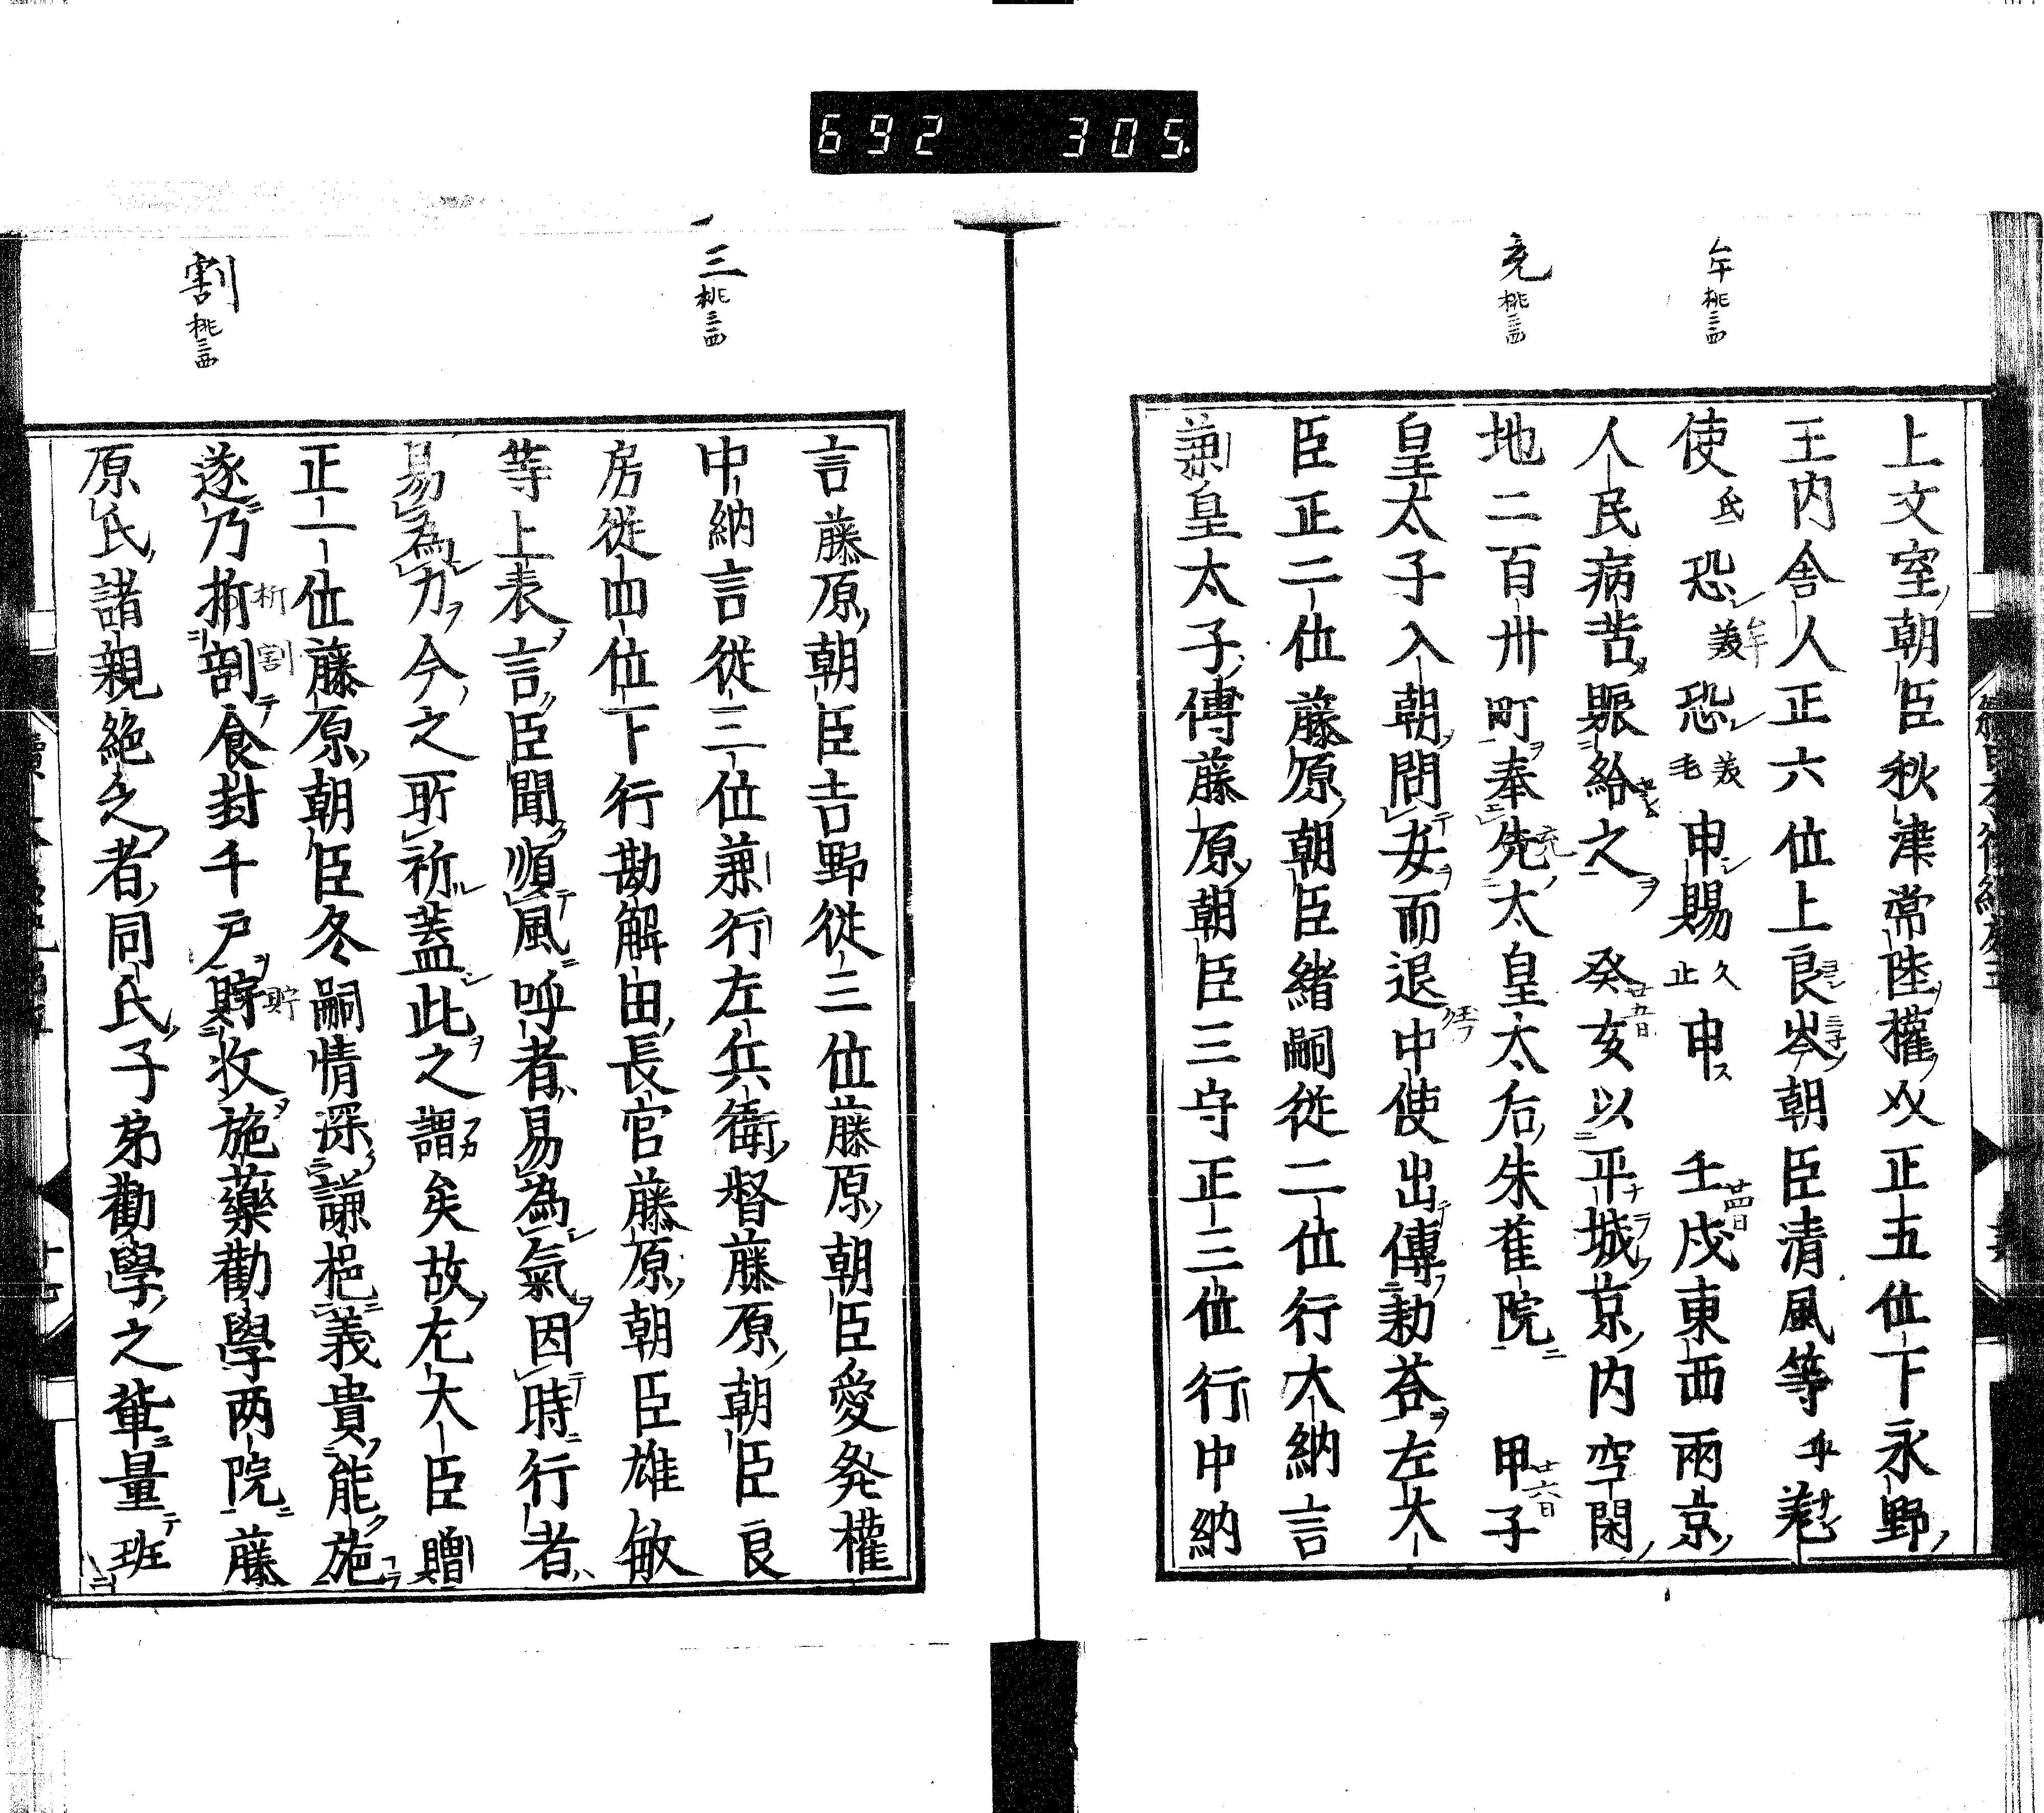 692 305.
牟桃三西
充桃三西
上文室朝臣秋津常陸權介正五位下永野
王内舎人正六位上良岑朝臣清風等乎差
使氐恐美恐美毛申賜久止申 壬戌東西兩京
人民病苦賑給之 癸亥以平城京内空閑
地二百卅町奉先太皇太后朱雀院 甲子
皇太子入朝問安而退中使出傳勅荅左大
臣正二位藤原朝臣緒嗣従二位行大納言
兼皇太子傅藤原朝臣三守正三位行中納
三桃三西
割桃三西
言藤原朝臣吉野従三位藤原朝臣愛発權
中納言従三位兼行左兵衛督藤原朝臣良
房従四位下行勘解由長官藤原朝臣雄敏
等上表言臣聞順風呼者易為氣因時行者
易為力今之所祈蓋此之謂矣故左大臣贈
正一位藤原朝臣冬嗣情深謙挹義貴能施
遂乃折割食封千戸貯收施藥勸學两院藤
原氏諸親絶之者同氏子弟勸學之輩量班